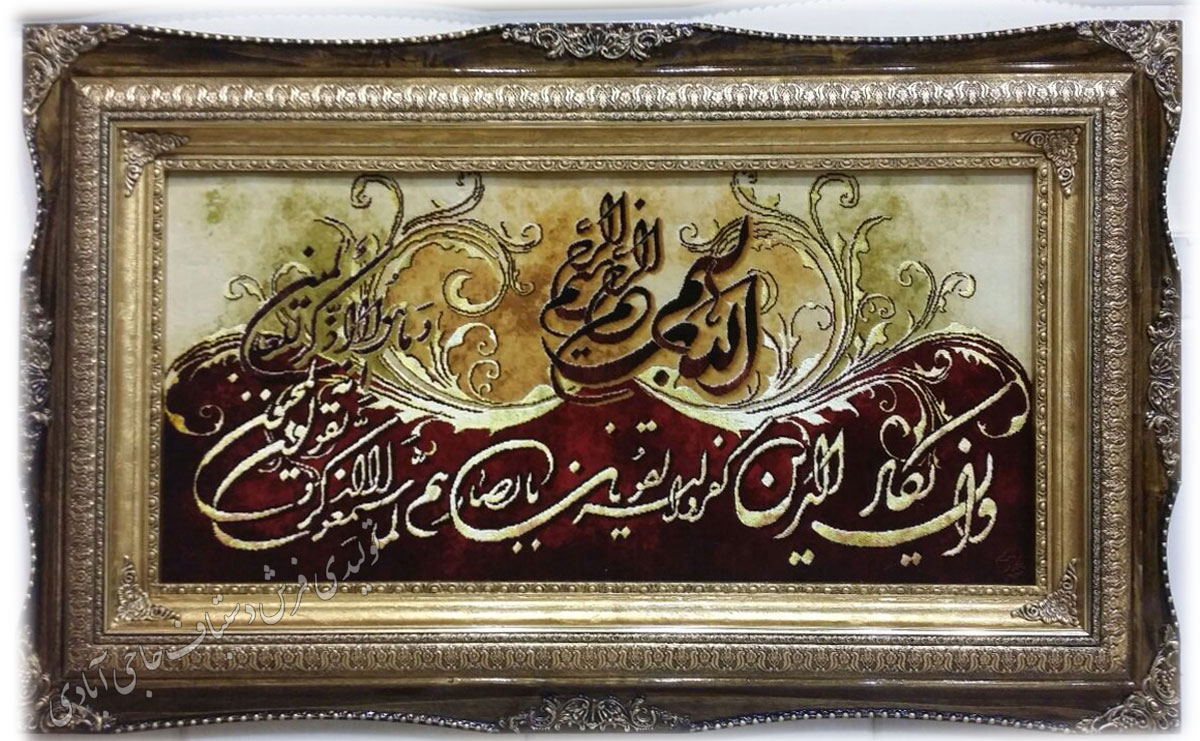 بسم الله الرحمن الرحیم
وان یکاد الذین کفروا لیزلقونک بابصارهم لما سمعوا الذکر و یقولون انه لمجنون
وما هو الا ذکر للعالمین
تولیدی فرش دستباف حاجی آبادی